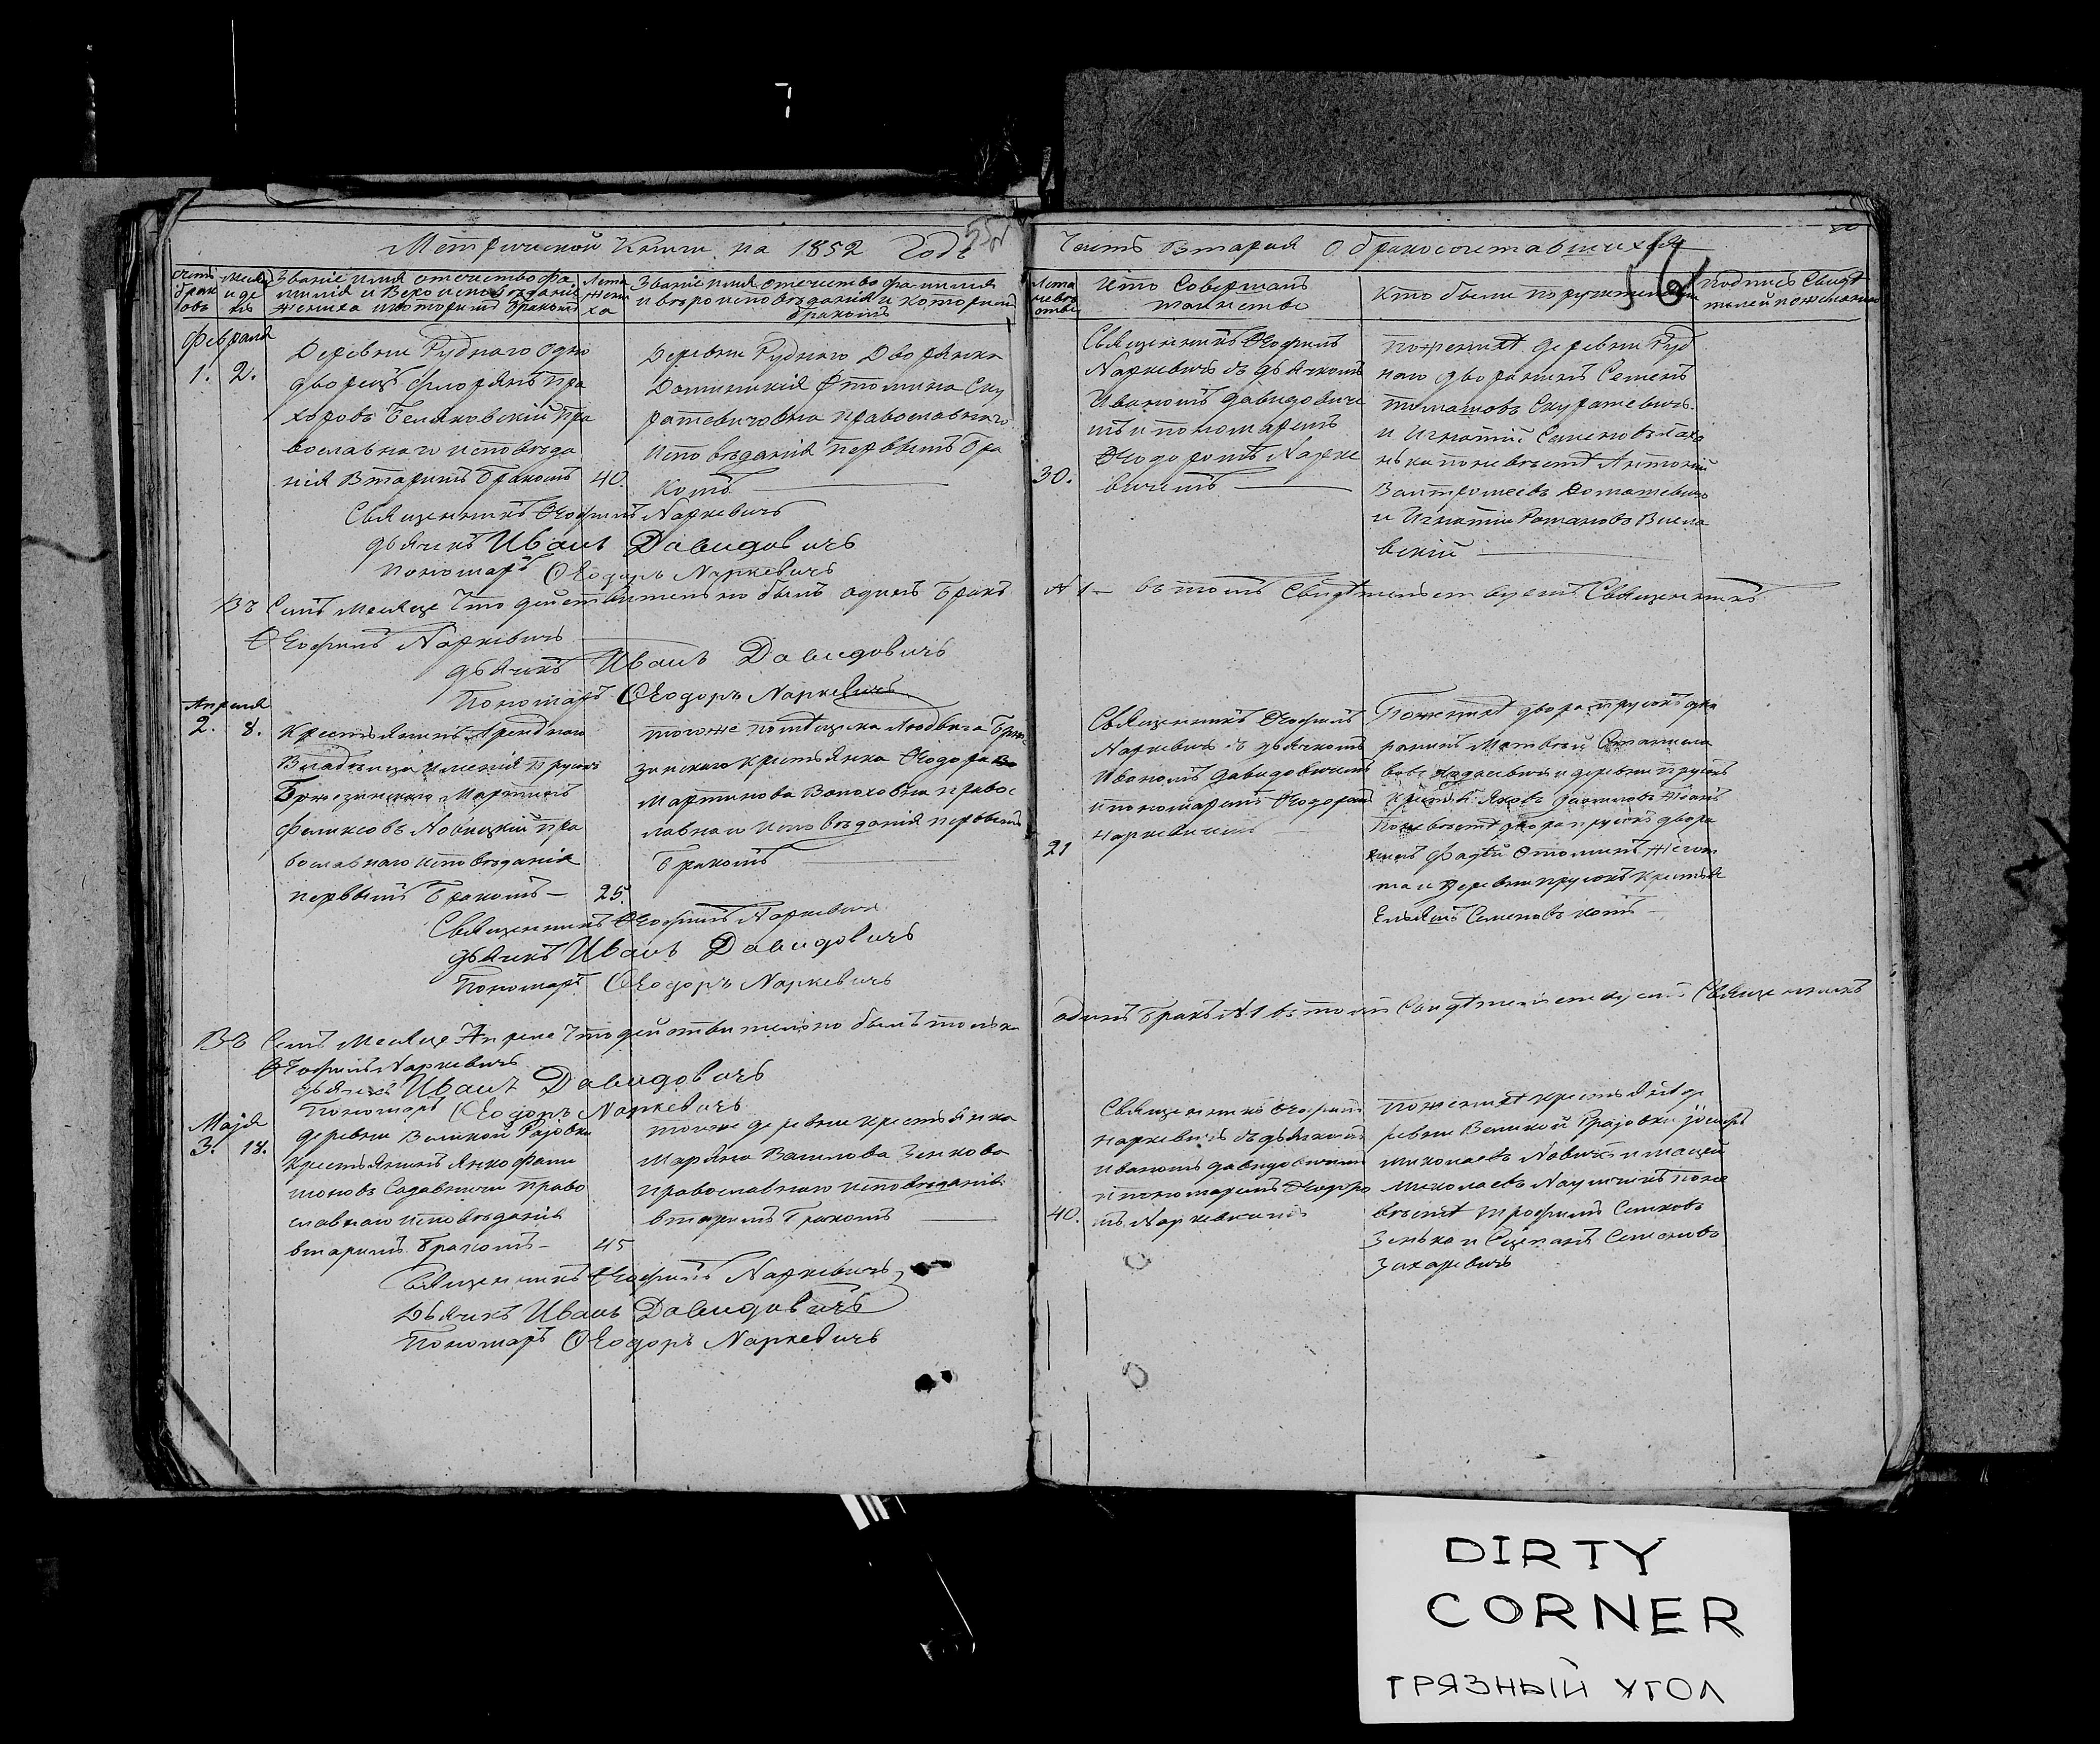 7
Метрической Книги на 1852 Годъ
55
Часть Вторая О бракосочетавшихся
56
счетъ браковъ
Месяцъ и день
Званіе имя отечество фамилія и Вероисповѣданіе жениха и которымъ бракомъ
Лета жениха
Званіе имя отечество фамилия и вѣроисповѣданія и которымъ бракомъ
Лета невѣсты
Кто Совершалъ таинство
Кто были поручители
Подпись Свидѣтелей по желанію
Февраля
1. 2.
Деревни Рудного Одно
дворецъ Флорянъ Пра
хоровъ Беляковскій Пра
вославнаго исповѣда
нія Вторымъ Бракомъ 40.
Деревни Рудного Дворянка
Доминикія Фтомина Ску
ратевичовна православнаго
исповѣданія первымъ бра
комъ
30.
Священникъ Феофилъ
Наркевичъ съ дьячкомъ
Иваномъ Давидовиче
мъ и пономаремъ
Феодоромъ Нарке
вичемъ
По женихѣ деревни Руд
ного дворянинъ Семенъ
Скуратевичъ
и Игнатій
по невѣстѣ Антоній
и Игнатій Романовъ
вскій
Священникъ Феофилъ Наркевичъ
дьячикъ Иванъ Давидовичъ
Пономарь Феодоръ Наркевичъ
Въ Семъ месяце что действительно былъ одинъ Бракъ
№ 1 – въ томъ Свидѣтельствуетъ Священникъ
Феофилъ Наркевичъ
дьячикъ Иванъ Давидовичъ
Пономарь Феодоръ Наркевичъ
Апреля
2. 8.
Крестьянинъ Арендного
Владельца имения Прусокъ
Бржезинскаго Мартинъ
Феликсовъ Новицкій пра
вославнаго исповѣданія
первымъ Бракомъ – 25.
тогоже помѣщика Людвига Брже
зинскаго крестьянка Феодора
Мартинова Волоховна право
славнаго исповѣданія первымъ
Бракомъ
21
Священникъ Феофилъ
Наркевичъ съ дьячкомъ
Иваномъ Давидовичемъ
и пономаремъ Феодоромъ
Наркевичемъ
По женихѣ двора прусокъ дво
рянинъ Матвей Станисла
вовъ и деревни прусокъ
Яковъ
По невѣстѣ двора прусокъ дворя
нинъ Фадей Фтоминъ
та и деревни прусокъ
Семеновъ
Священникъ Феофилъ Наркевичъ
дьячикъ Иванъ Давидовичъ
Пономарь Феодоръ Наркевичъ
Въ Семъ Месяце Апреле что действительно былъ только
одинъ Бракъ №1 въ томъ Свидѣтельствуетъ Священникъ
Феофилъ Наркевичъ
дьячикъ Иванъ Давидовичъ
Пономарь Феодоръ Наркевичъ
Майя
3. 18.
деревни Великой Раіовки
крестьянинъ Янко Фили
моновъ Садовничи право
славнаго исповѣданія
вторымъ Бракомъ – 45
тоиже деревни крестьянка
Маряна Василова Зенкова
православнаго исповѣданія
вторымъ Бракомъ
40.
Священникъ Феофилъ
Наркевичъ съ дьячкомъ
Иваномъ Давидовичемъ
и пономаремъ Феодоро
мъ Наркевичемъ
По женихѣ крестьяни де
ревни Великой Раіовки Іосифъ
Николаевъ и Мацей
Николаевъ по не
вѣстѣ Трофимъ Семковъ
Зенько и Сцепанъ Семеновъ
Захаревичъ
Священникъ Феофилъ Наркевичъ
Дьячикъ Иванъ Давидовичъ
Пономарь Феодоръ Наркевичъ
DIRTY
CORNER
ГРЯЗНЫЙ УГОЛ